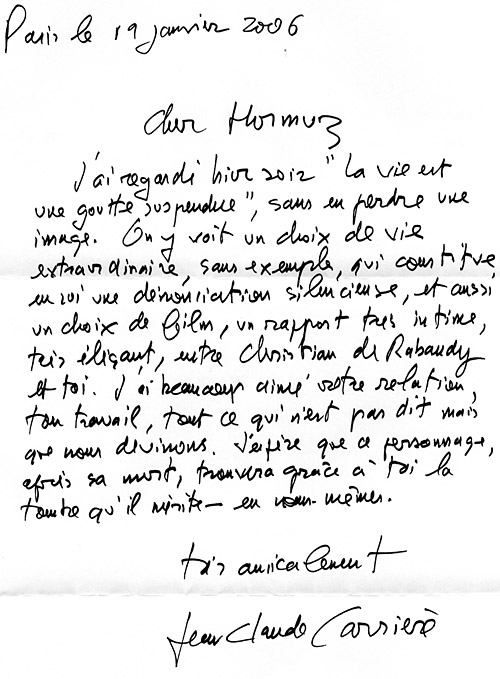 Paris le 19 janvier 2006
cher Hormuz
J'ai regardé hier soir "La vie est
une goutte suspendue", sans en perdre une
image. On y voit un choix de vie
extraordinaire, sans exemple, qui constitue
en soi une dénonciation silencieuse, et aussi
un choix de film, un rapport très intime,
très élégant, entre Christian de Rabaudy
et toi. J'ai beaucoup aimé votre relation,
ton travail, tout ce qui n'est pas dit mais
que nous devinons. J'espère que ce personnage,
après sa mort, trouvera grâce à toi la
tombe qu'il mérite — en nous-mêmes.
très amicalement
Jean Claude Carrière